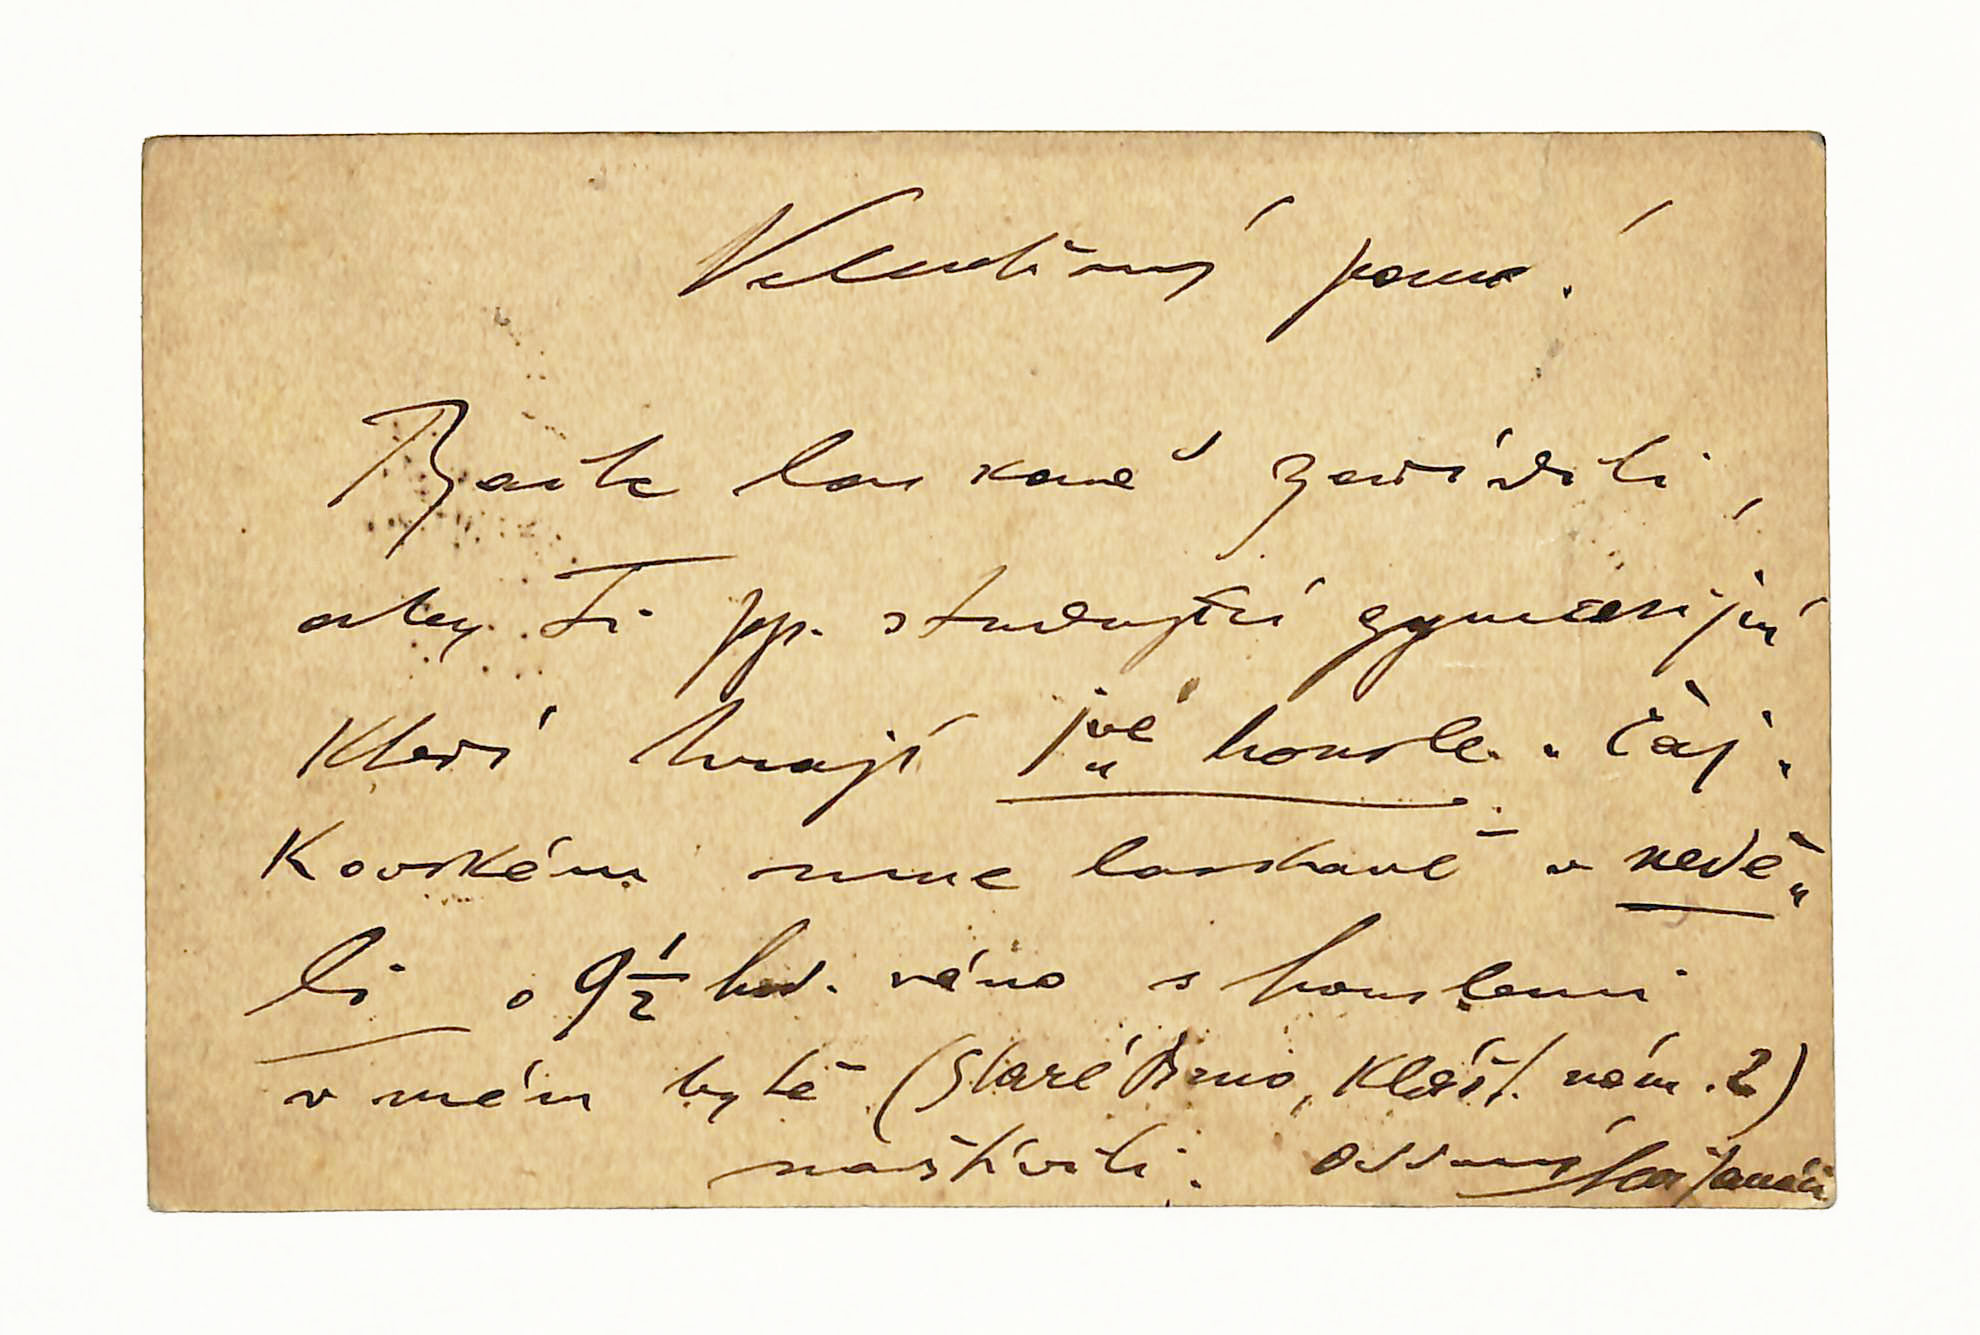 Veleuctěný pane!
Račte laskavě zaříditi,
aby ti pp. studující gymnasijní
kteří hrají I.vé housle v Čaj„
kovském mne laskavě v nedě„
li o 9 1/2 hod. ráno s houslemi
v mém bytě (Staré Brno, Klášt. nám. 2)
navštívili. Oddaný Leoš Janáček